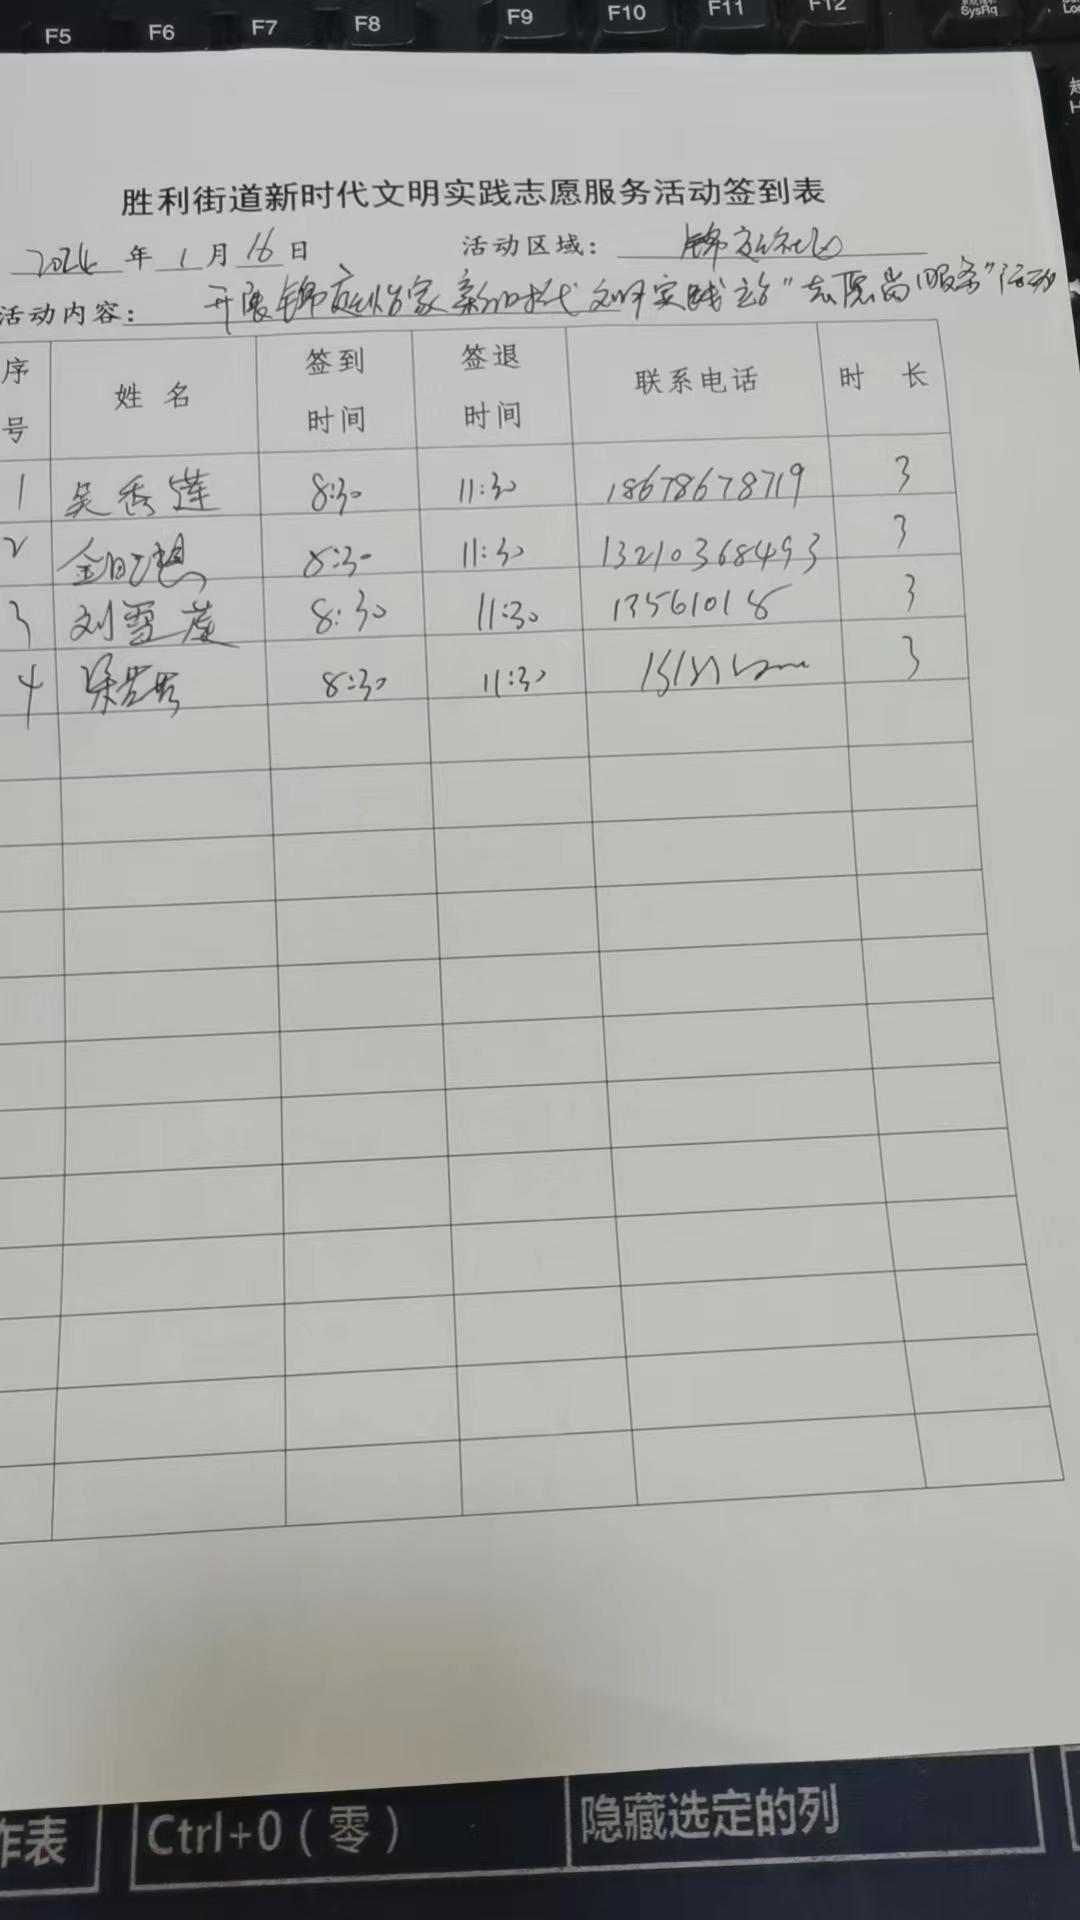 F5 F6 F7 F8 F9 F10 F11 F12 SysRq
胜利街道新时代文明实践志愿服务活动签到表
2024 年 1 月 16 日 活动区域: 锦庭社区
活动内容: 开展锦庭怡家新时代文明实践站"志愿尚服务"活动
序号 姓名 签到时间 签退时间 联系电话 时长
1 吴秀莲 8:30 11:30 18678678719 3
2 8:30 11:30 13210368493 3
3 刘雪莲 8:30 11:30 13561018 3
4 8:30 11:30 3
作表 Ctrl+0(零) 隐藏选定的列